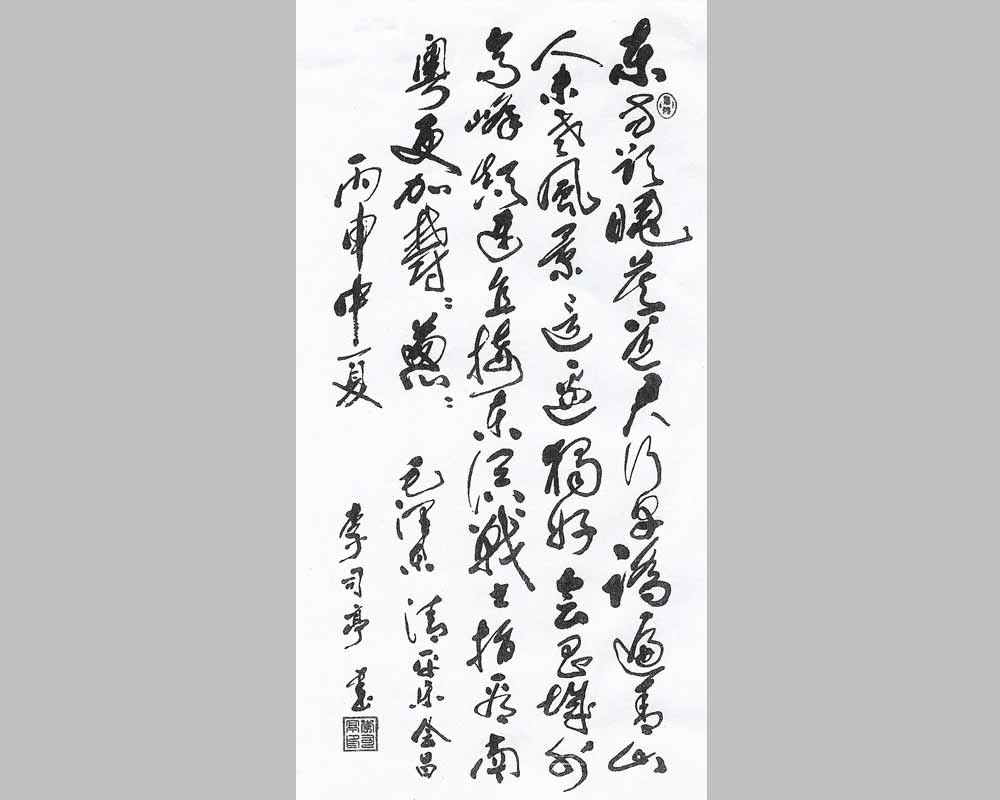 东方欲曉莫道君行早踏遍青山
人未老風景這邊獨好会昌城外
高峰颠連直接东溟戰士指看南
粤更加鬱〻葱〻 毛澤东 清平乐会昌
丙申中夏 李司亭書